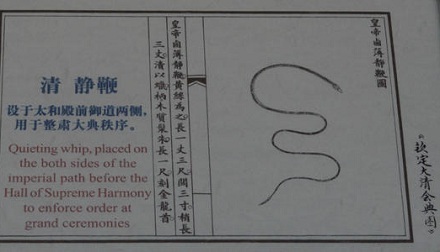 清 静鞭
设于太和殿前御道两侧，
用于整肃大典秩序。
Quieting whip, placed on
the both sides of the
imperial path before the
Hall of Supreme Harmony
to enforce order at
grand ceremonies
皇帝鹵簿靜鞭圖
皇帝鹵簿靜鞭黄絲為之長一丈三尺闊三寸梢長
三丈漬以蠟柄木質髹朱長一尺刻金龍首
欽定大清會典圖